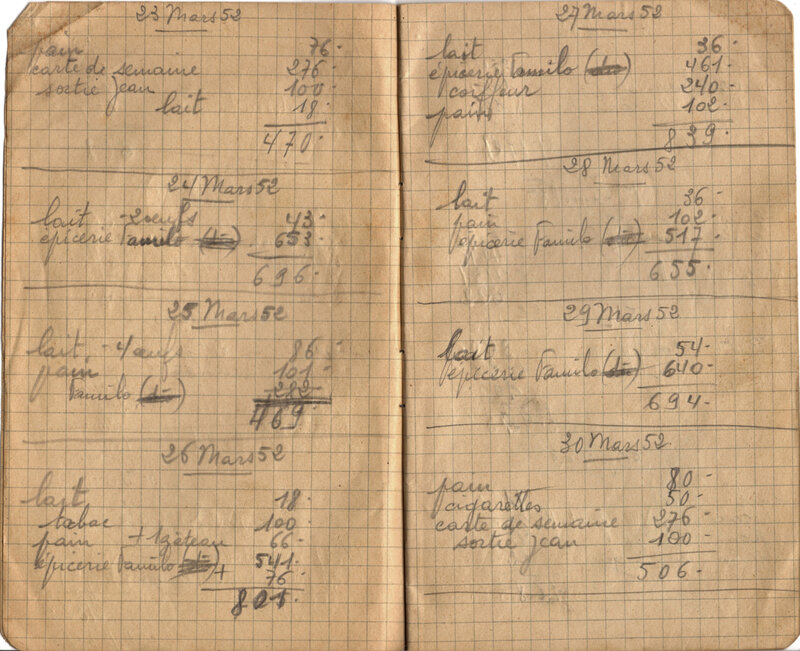 23 Mars 52
pain 76.
carte de semaine 276.
sortie Jean 100.
lait 18.
470.
24 Mars 52
lait - 2 œufs 43.
épicerie Familo 653.
696.
25 Mars 52
lait - 4 œufs 86.
pain 101.
Familo 282.
469.
26 Mars 52
lait 18.
tabac 100.
pain + 1 gâteau 66.
épicerie Familo 541.
+ 76.
801.
27 Mars 52
lait 36.
épicerie Familo 461.
coiffeur 240.
pain 102.
839.
28 Mars 52
lait 36.
pain 102.
épicerie Familo 517.
655.
29 Mars 52
lait 54.
épicerie Familo 640.
694.
30 Mars 52
pain 80.
cigarèttes 50.
carte de semaine 276.
sortie Jean 100.
506.